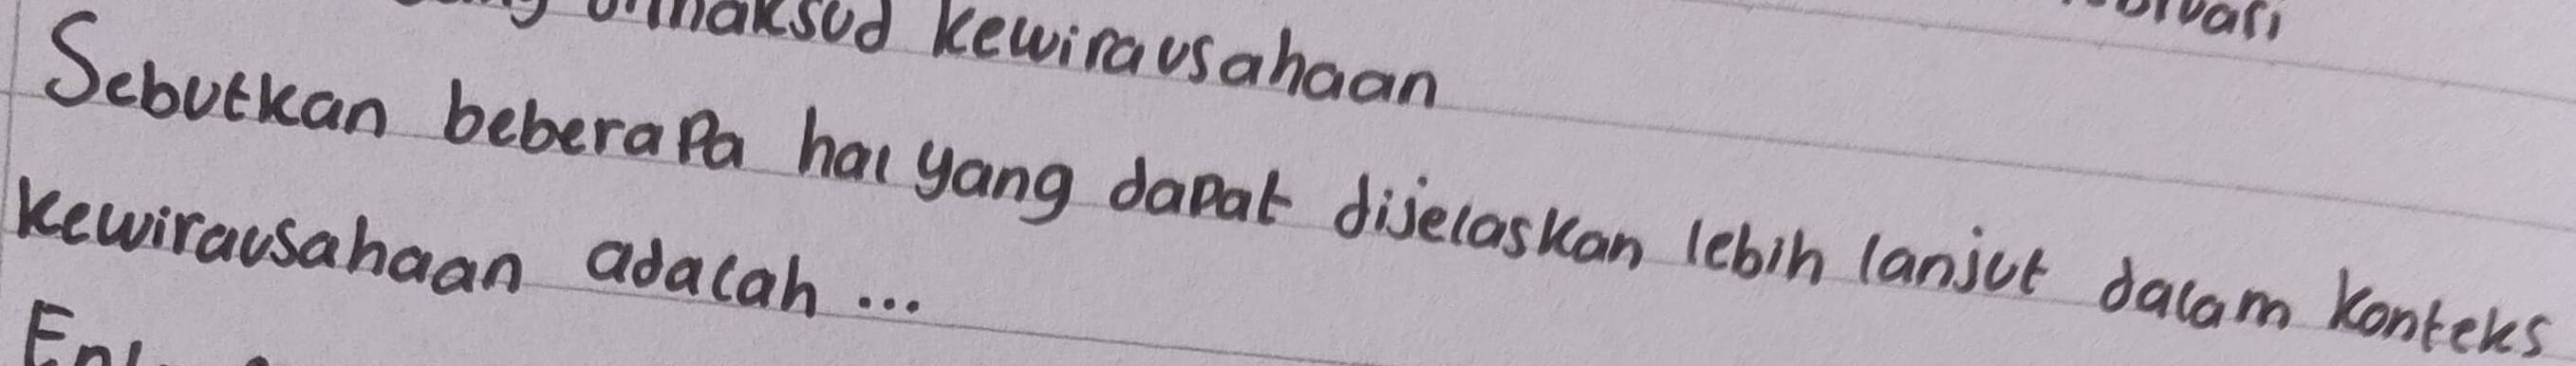 dimaksud kewirausahaan
Sebutkan beberapa hal yang dapat dijelaskan lebih lanjut dalam konteks
kewirausahaan adalah ...